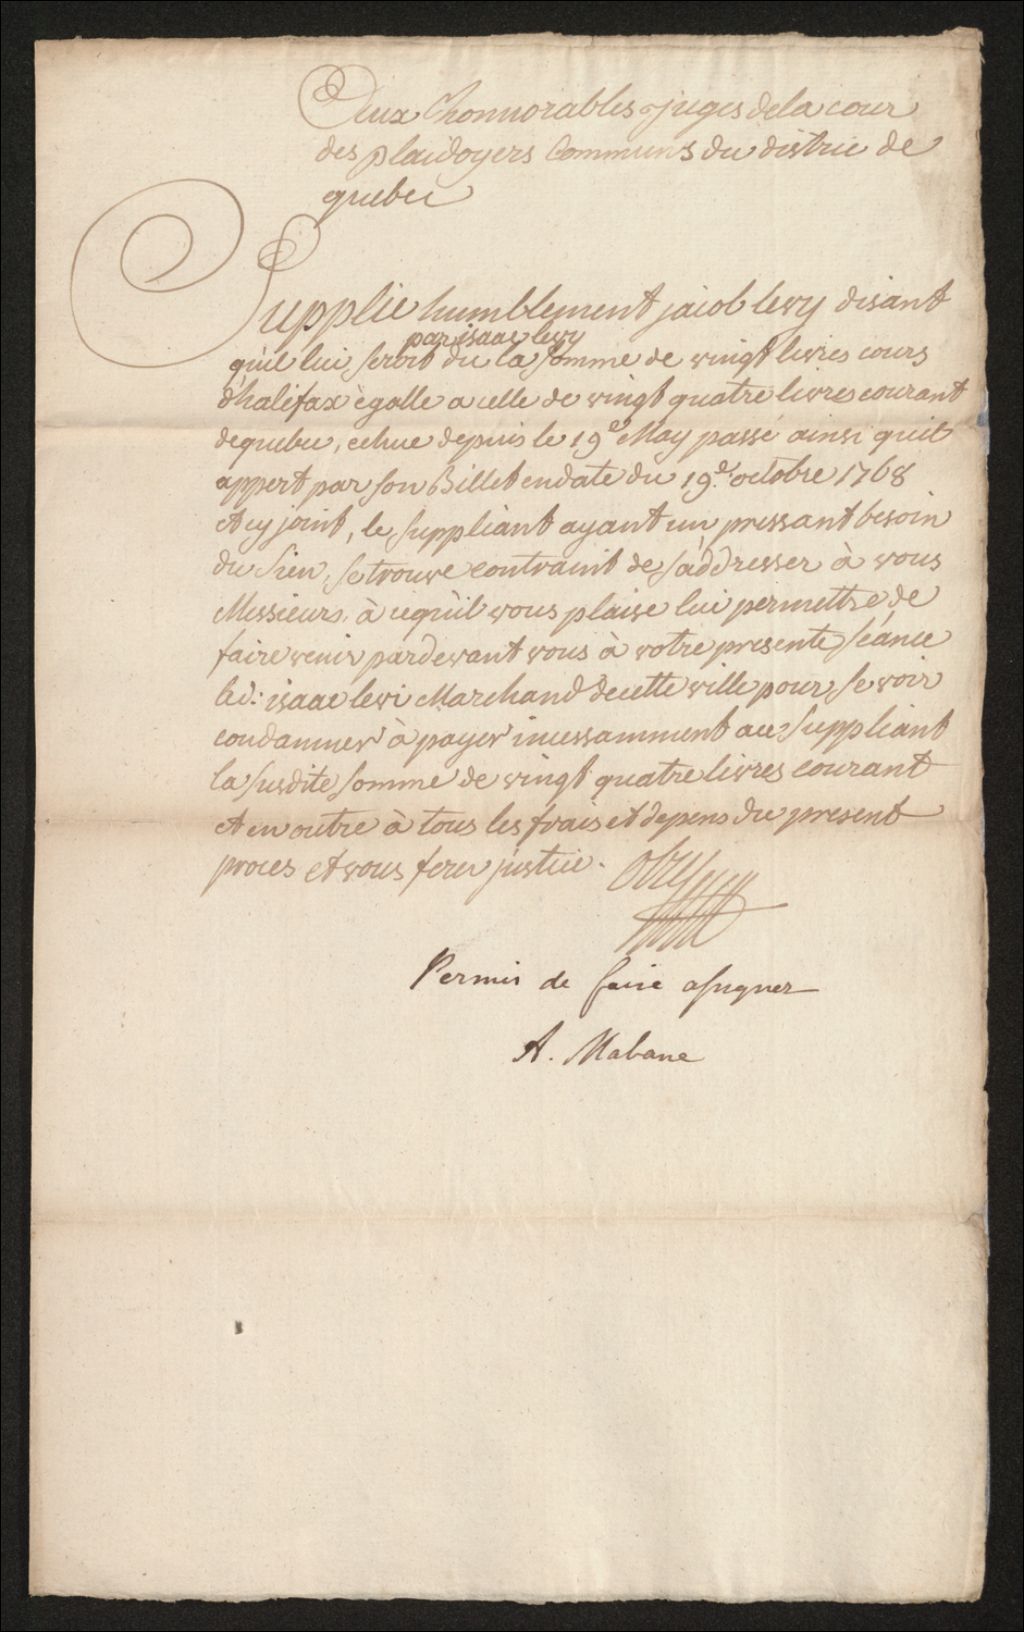 Aux honnorables juges dela cour
des plaidoyers Communs du distric de
quebec
Supplie humblement jacob levy disant
par isaac levy
qu'il lui seroit du la somme de vingt livres cours
d'halifax ègalle a celle de vingt quatre livres courant
dequebec, echue depuis le 19e May passé ainsi quil
appert par son Billet endate du 19e. octobre 1768
et cy joint, le suppliant ayant un pressant besoin
du sien, se trouve contraint de s'addresser à vous
Messieurs, à cequ'il vous plaise lui permettre de
faire venir pardevant vous à votre presente séance
led: isaac levi Marchand decette ville pour se voir
condamner à payer incessamment au suppliant
la susdite somme de vingt quatre livres courant
et en outre à tous les frais et depens du present
proces et vous ferez justice.
Permis de faire assigner
A. Mabane